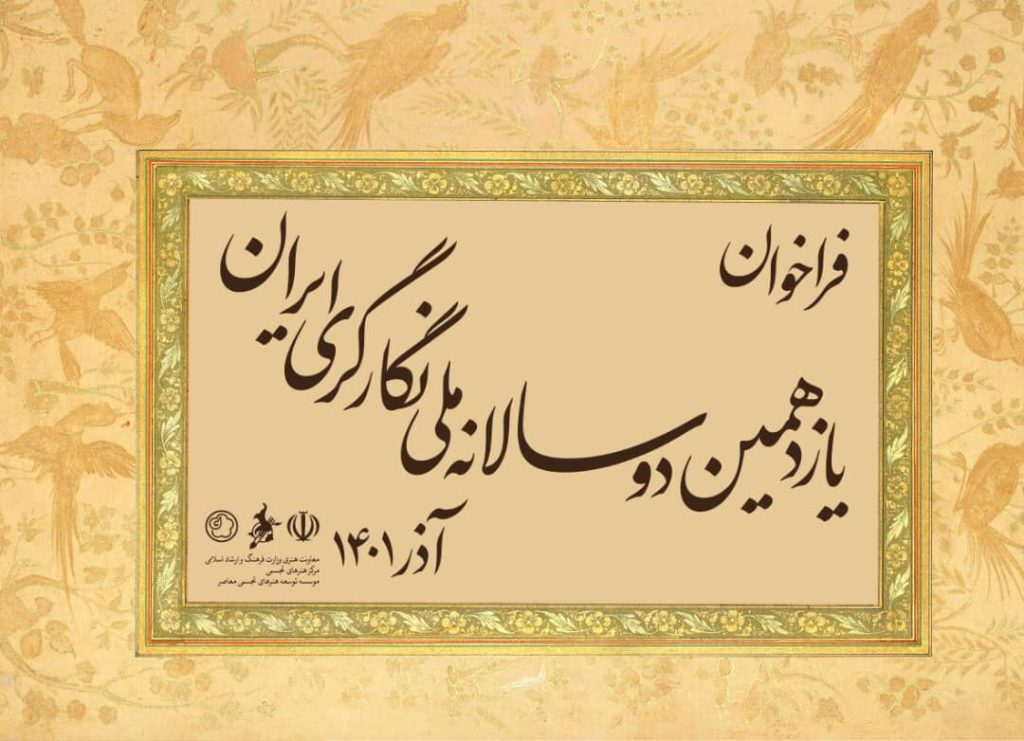 فراخوان
یازدهمین دوسالانه ملی نگارگری ایران
آذر ۱۴۰۱
معاونت هنری وزارت فرهنگ و ارشاد اسلامی
مرکز هنرهای تجسمی
موسسه توسعه هنرهای تجسمی معاصر